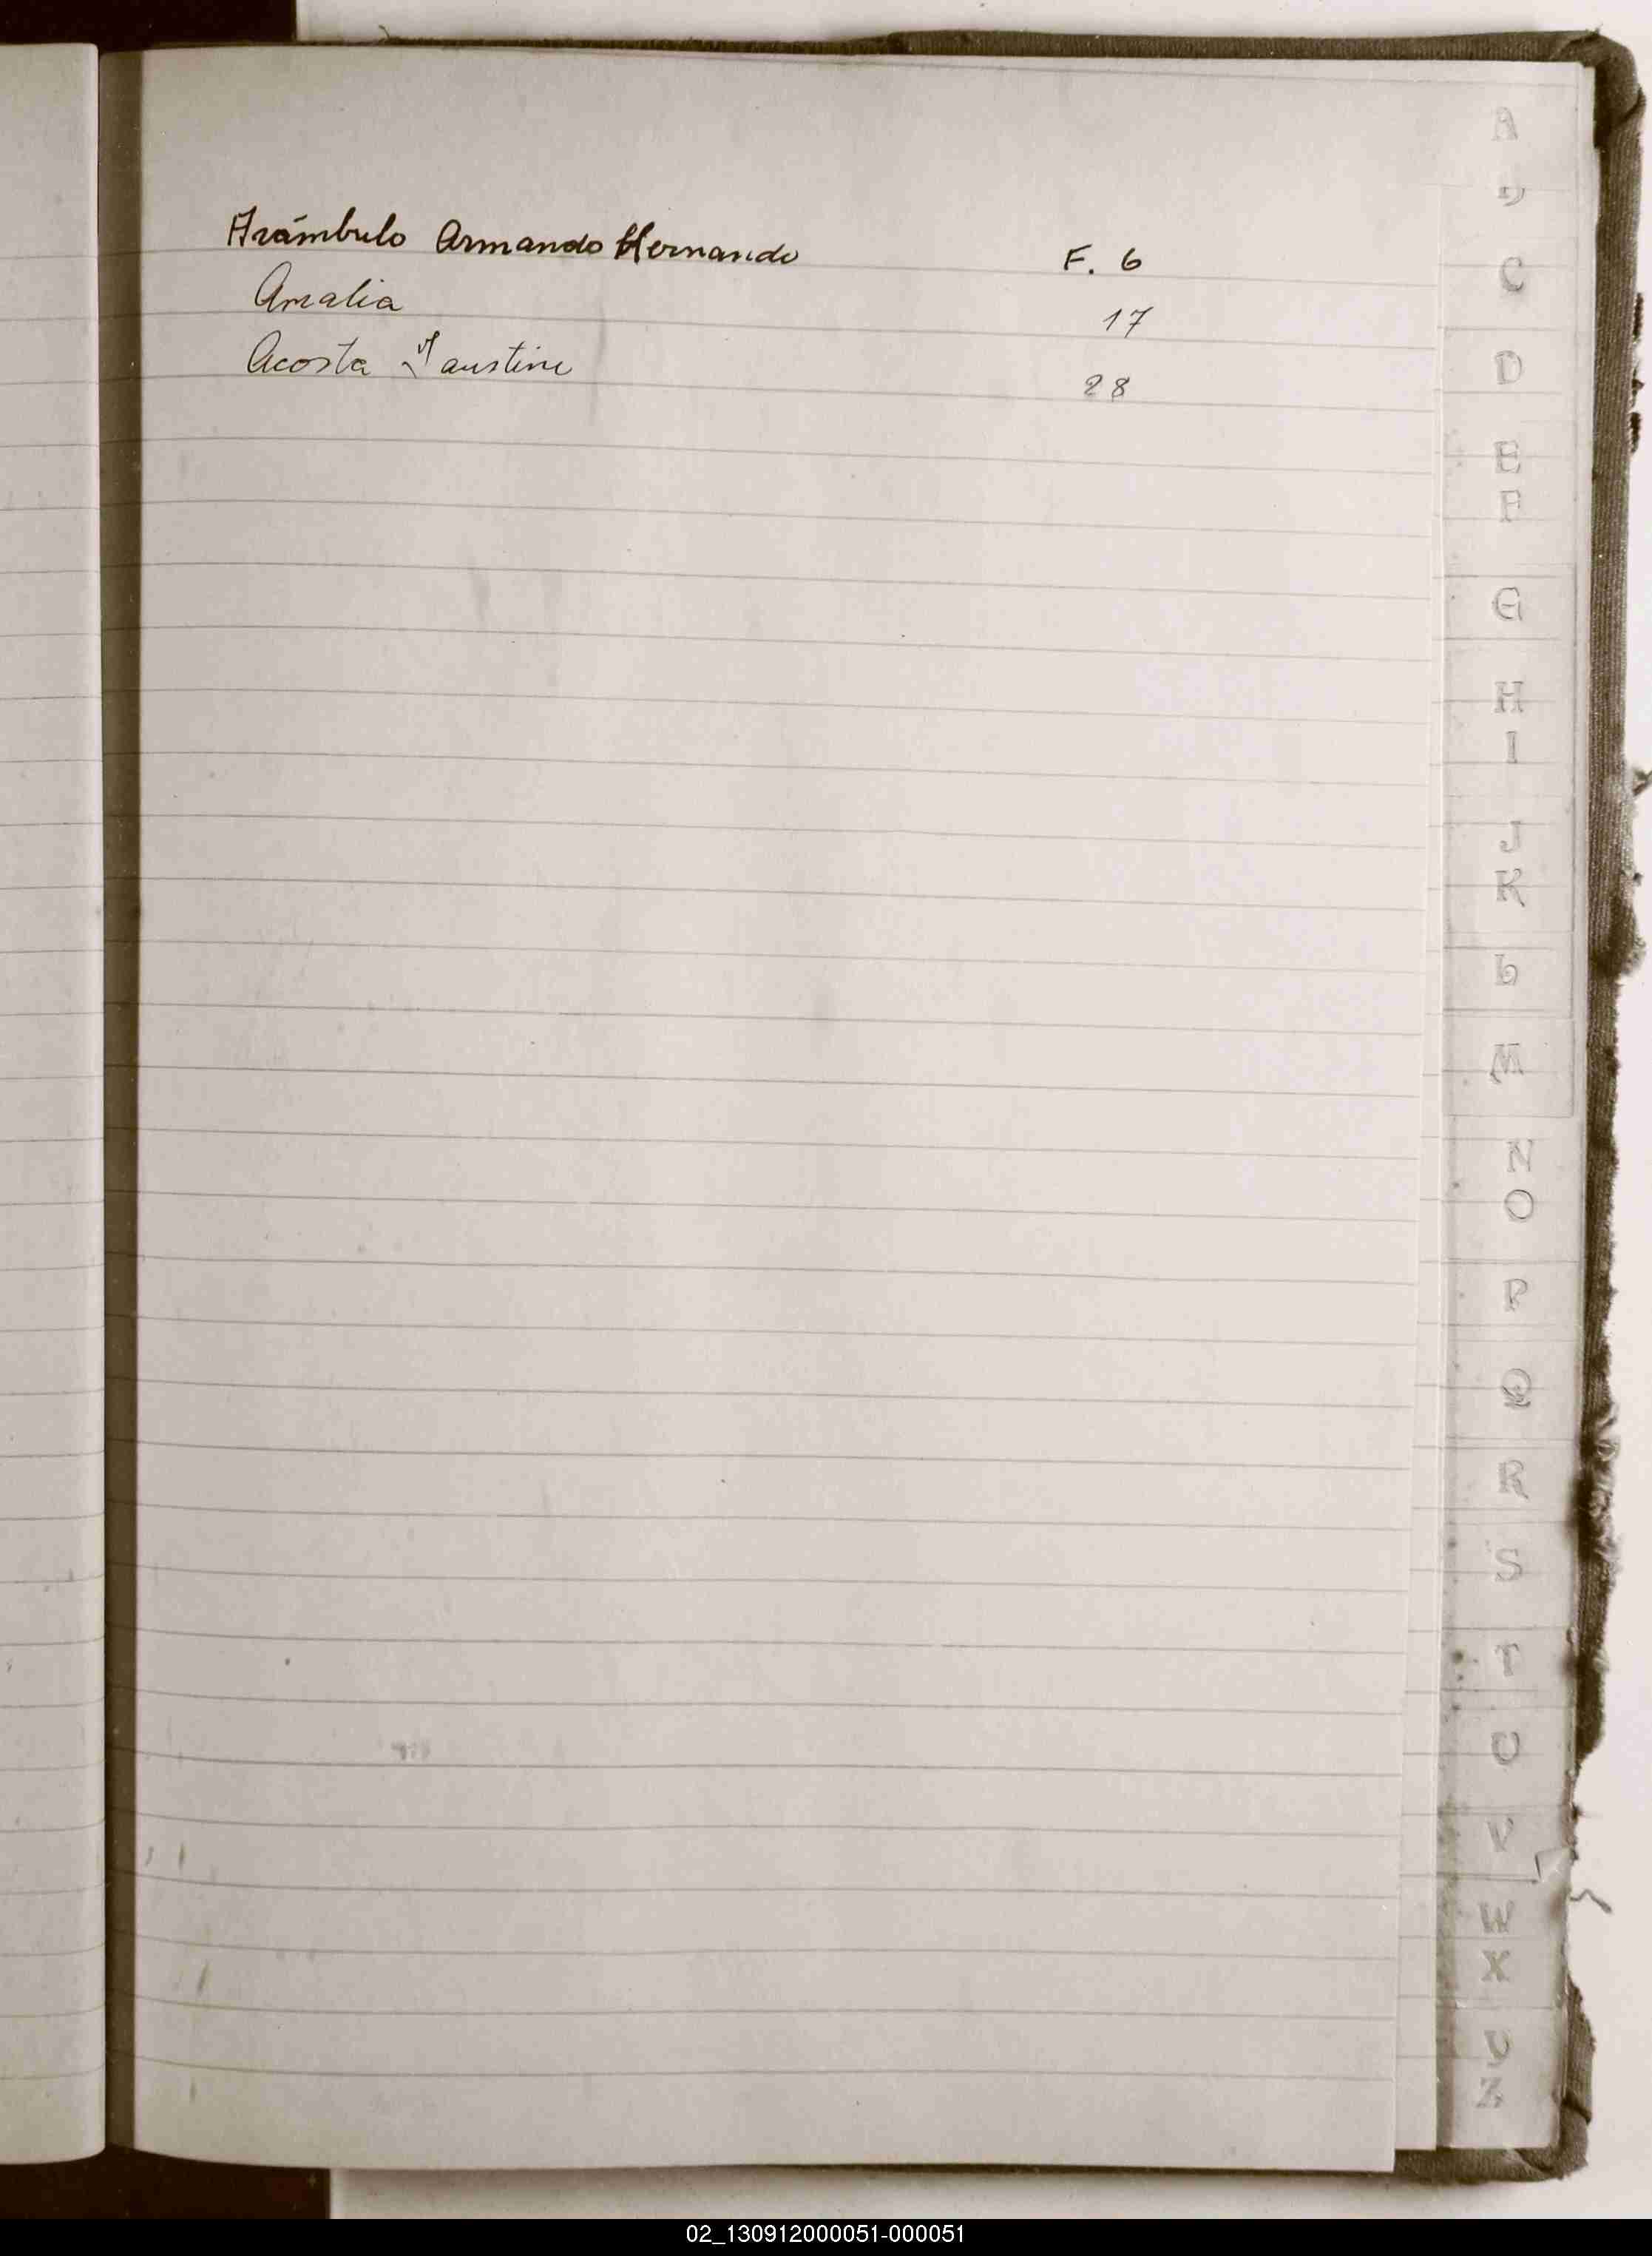 Arámbulo Armando Hernando F. 6
Amalia 17
Acosta Faustino 28
A
C
D
E
F
G
H
I
J
K
L
M
N
O
P
Q
R
S
T
U
V
W
X
Y
Z
02_130912000051-000051